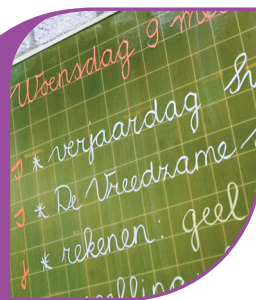 Woensdag 9 me
* verjaardag
* De Vreedzame
* rekenen: geel